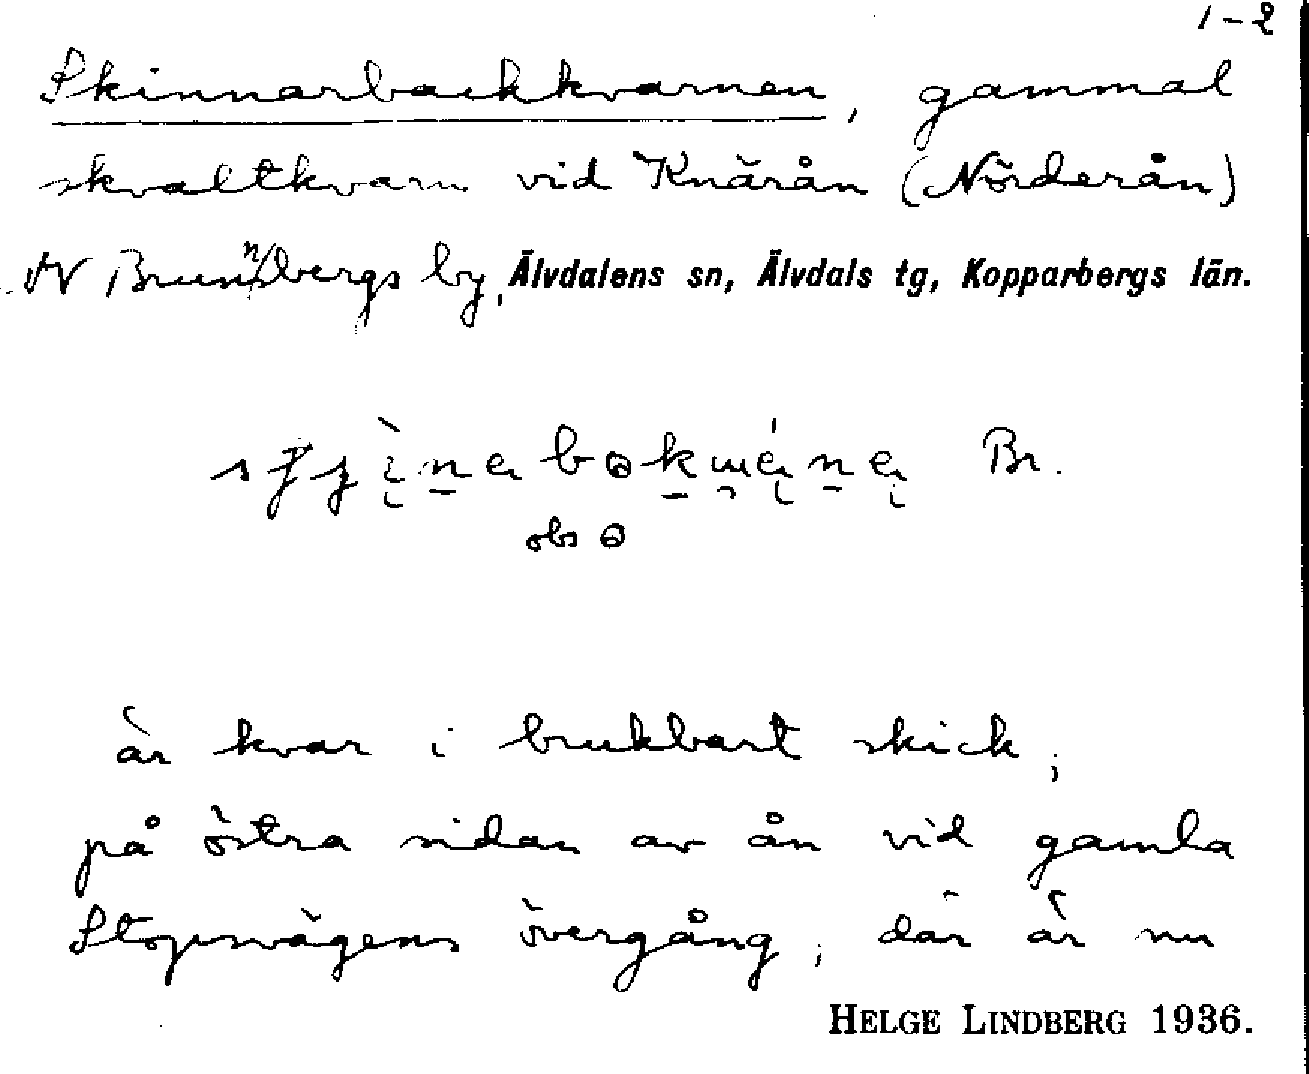 1-2
Skinnarbackkvarnen, gammal
skvaltkvarn vid Knärån (Nörderån)
N Brunnbergs by, Älvdalens sn, Älvdals tg, Kopparbergs län.
Br.
obs
är kvar i brukbart skick,
på östra sidan av ån vid gamla
Stopsvägens övergång; där är nu
HELGE LINDBERG 1936.